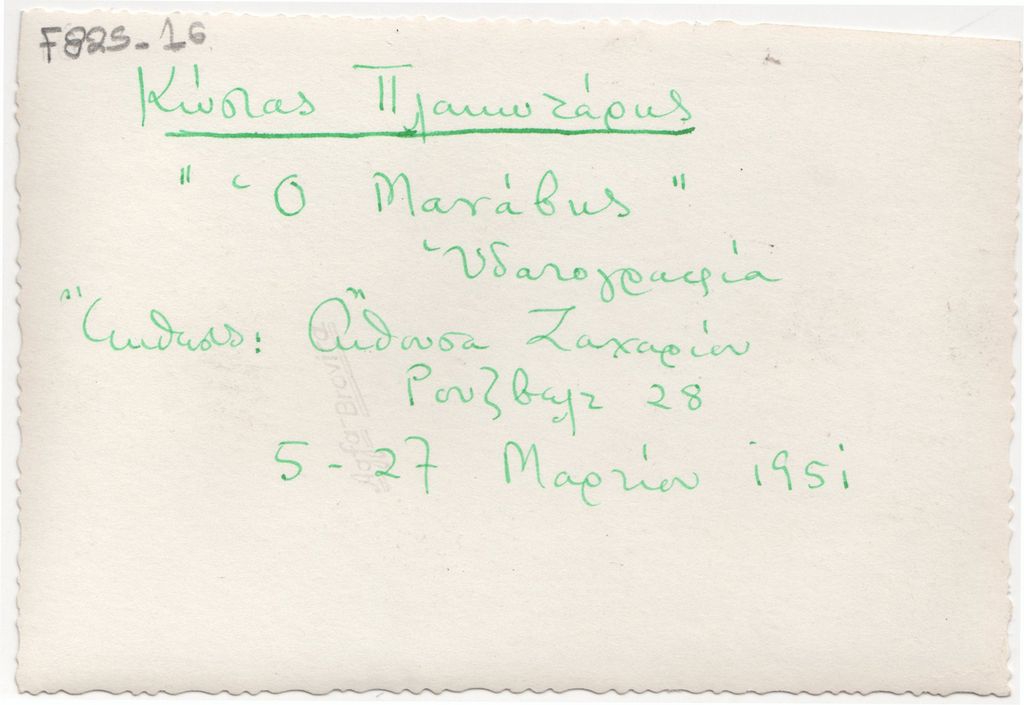 F825-16
Κώστας Πλακωτάρης
" Ὁ Μανάβης "
Ὑδατογραφία
Ἔκθεσις: Αἴθουσα Ζαχαρίου
Ρουζβελτ 28
5-27 Μαρτίου 1951
Agfa-Brovira